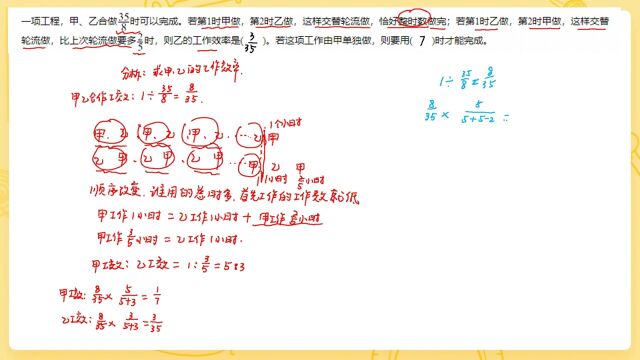 一项工程，甲、乙合做35/8时可以完成。若第1时甲做，第2时乙做，这样交替轮流做，恰好整时数做完；若第1时乙做，第2时甲做，这样交替
轮流做，比上次轮流做要多2/5时，则乙的工作效率是(3/35)。若这项工作由甲单独做，则要用( 7 )时才能完成。
分析：求甲、乙的工作效率.
甲乙合作工效：1÷35/8=8/35.
甲、乙、甲、乙、甲、乙…乙 甲
1个小时
乙 甲、乙 甲、乙 甲…甲 乙 甲
1小时 2/5小时
顺序改变，谁用的总时多，首先工作的工作效率低
甲工作1小时=乙工作1小时+甲工作2/5小时
甲工作3/5小时=乙工作1小时.
甲工效：乙工效=1：3/5=5：3
甲工效：8/35×5/(5+3)=1/7
乙工效：8/35×3/(5+3)=3/35
1÷35/8=8/35
8/35×5/(5+5-2)=